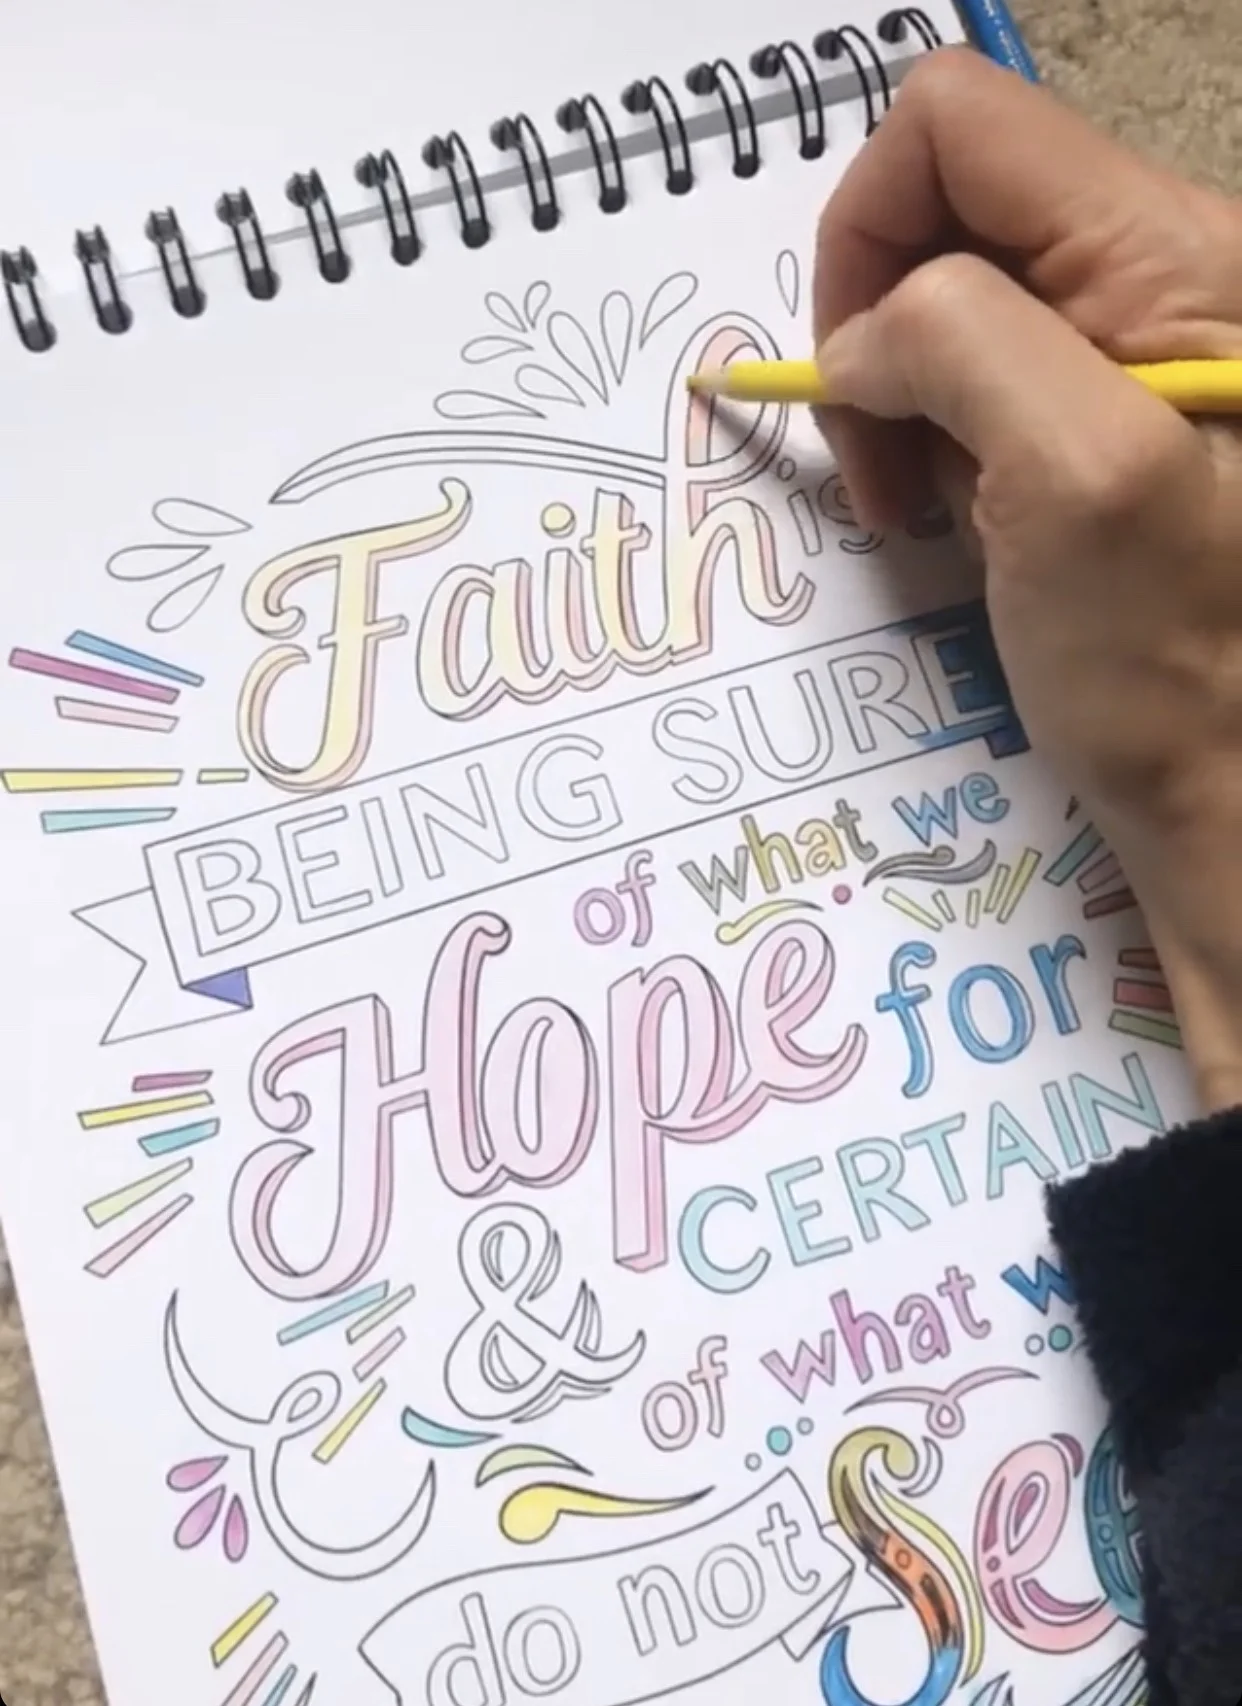 Faith is
BEING SURE
of what we
Hope for
& CERTAIN
of what
do not See